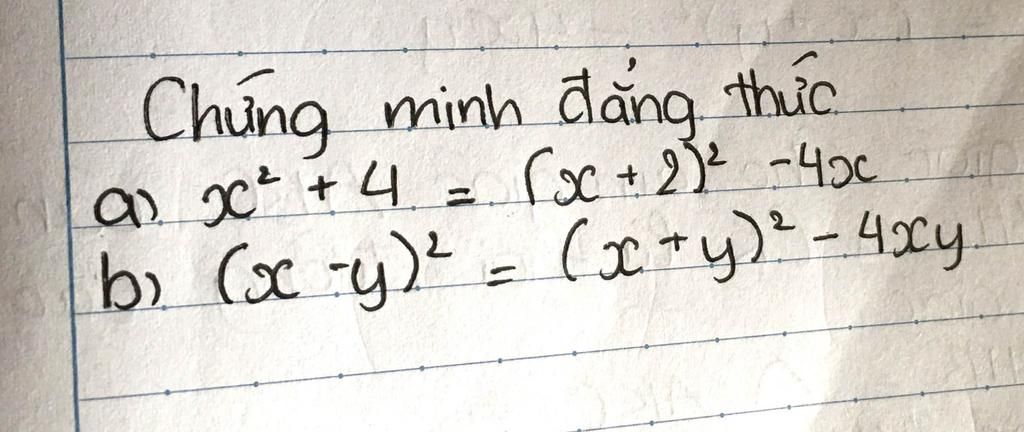 Chứng minh đẳng thức
a) x² + 4 = (x + 2)² - 4x
b) (x - y)² = (x + y)² - 4xy